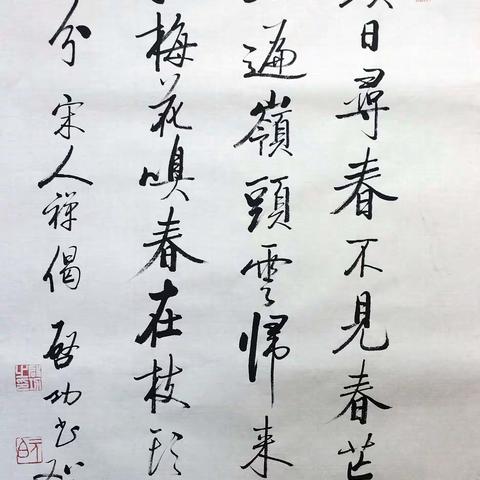 日尋春不見春芒
遍嶺頭雲歸来
梅花嗅春在枝頭
分 宋人禪偈 啓功书